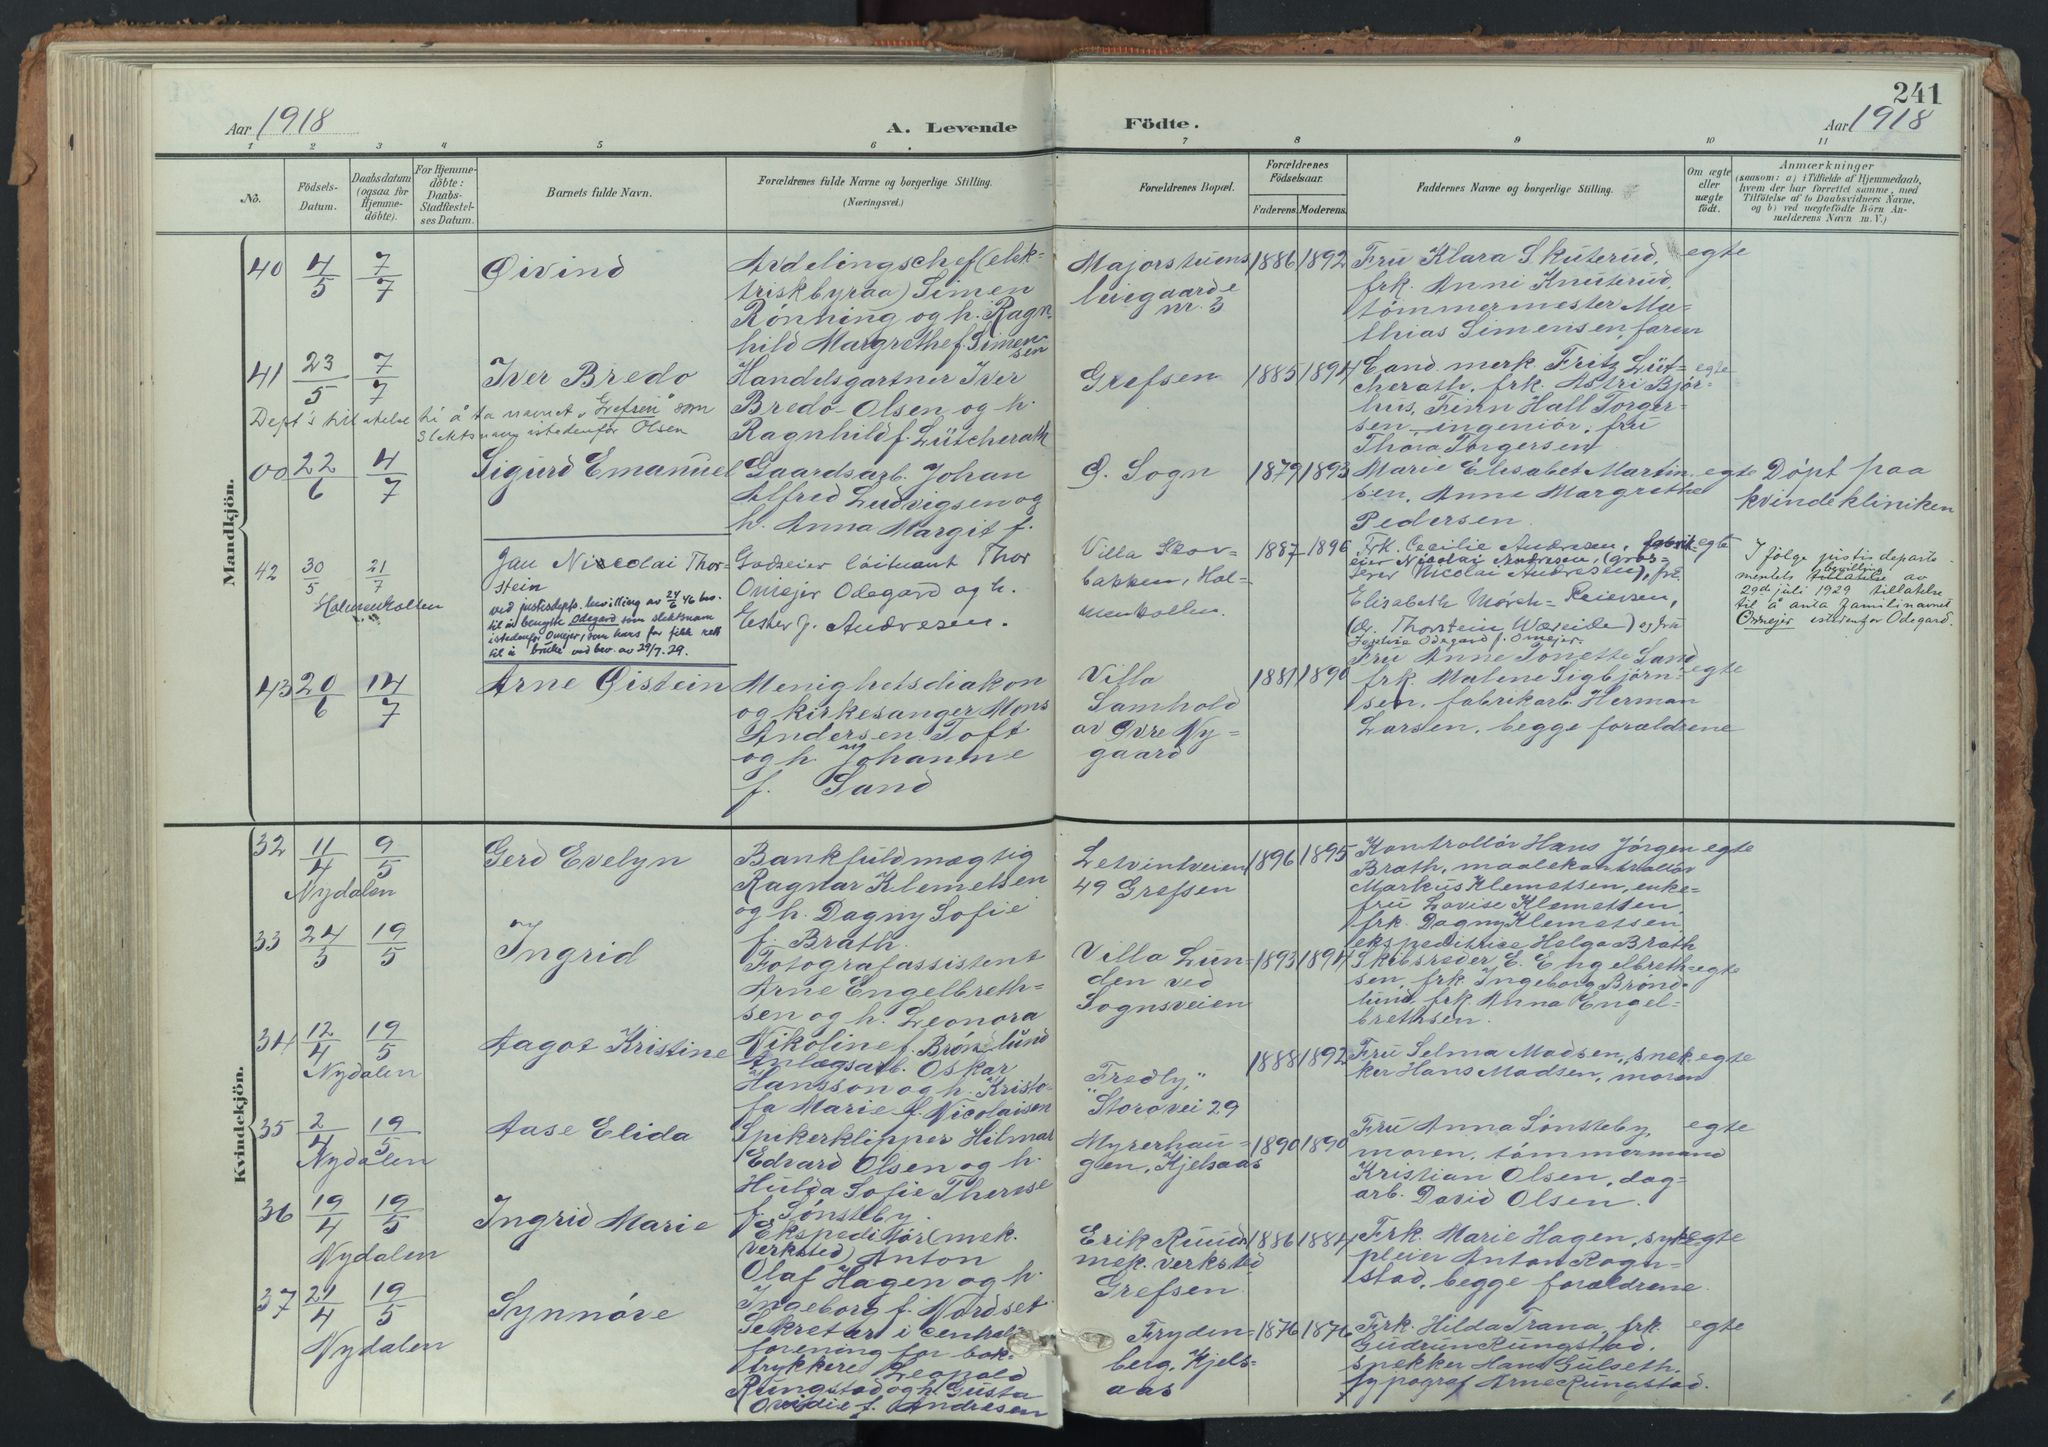 241
Aar 1918
A. Levende Födte.
Aar 1918
1 2 3 4 5 6 7 8 9 10 11
No.
Födsels-Datum.
Daabsdatum (ogsaa for Hjemmedöbte).
For Hjemmedöbte: Daabs-Stadfæstelses Datum.
Barnets fulde Navn.
Forældrenes fulde Navne og borgerlige Stilling.
(Næringsvei.)
Forældrenes Bopæl.
Forældrenes Födselsaar.
Faderens. Moderens.
Faddernes Navne og borgerlige Stilling.
Om ægte eller uægte födt.
Anmærkninger
(saasom: a) i Tilfælde af Hjemmedaab,
hvem der har forrettet samme, med
Tilföielse af to Daabsvidners Navne,
og b) ved uægtefödte Börn An-
melderens Navn m. V.)
Mandkjön.
40 4/5 7/7 Øivind
Avdelingschef (elek-
triskbyraa) Simen
Rønning og h. Ragn-
hild Margrethe f. Simen-
sen
Majorstuens
leiegaarde
nr. 3
1886 1892
Fru Klara Skuterud,
frk. Anni Knuterud,
tømmermester Ma-
thias Simensen, faren
egte
41 23/5 7/7 Iver Bredo
Dept's tillatelse til å ta navnet "Grefsen" som
slektsnavn istedenfor Olsen
Handelsgartner Iver
Bredo Olsen og h.
Ragnhild f. Lütcherath
Grefsen
1885 1894
Cand. merk Fritz Lüt-
cherath, frk. Astri Bjør-
hus, Finn Hall Torger-
sen, ingeniør, fru
Thora Torgersen
egte
00 22/6 4/7 Sigurd Emanuel
Gaardsarb. Johan
Alfred Ludvigsen og
h. Anna Margit f.
Ø. Sogn
1879 1893
Marie Elisabet Martin-
sen, Anne Margrethe
Pedersen
egte
Døpt paa
kvindekliniken
42 30/5 21/7
Holmenkollen
Jan Niccolai Thor-
stein
ved justisdepts. bevilling av 24/6 46 bev.
til å benytte Odegard som slektsnavn
istedenfor Omejer, som hans far fikk rett
til å bruke ved bev. av 29/7. 29.
Godseier løitnant Thor
Omejer Odegard og h.
Ester f. Andresen.
Villa Skov-
bakken, Hol-
menkollen.
1887 1896
Frk. Cecilie Andresen, fabrik-
eier Nicolai Andresen, (gros-
serer Nicolai Andresen), fru
Elizabeth Mörch-Reiersen,
(dr. Thorstein Wæreide) og fru
Odegard f. Omejer.
egte
I følge justisdeparte-
mentets bevilling av
29de juli 1929 tillatelse
til å anta familienavnet
Omejer istedenfor Odegard.
43 20/6 14/7 Arne Øistein
Menighetsdiakon
og kirkesanger Mons
Andersen Toft
og h. Johanne
f. Sand
Villa
Samhold
av Øvre Ny-
gaard
1881 1890
Fru Anne Tonette Sand
frk. Malene Sigbjørn-
sen, fabrikarb. Herman
Larsen, begge forældrene
egte
Kvindekjön.
32 11/4 9/5 Gerd Evelyn
Nydalen
Bankfuldmægtig
Ragnar Klemetsen
og h. Dagny Sofie
f. Brath.
Letvintveien
49 Grefsen
1896 1895
Kontrollör Hans Jörgen
Brath, maalekontrollör
Markus Klemetsen, enke-
fru Lovise Klemetsen,
frk. Dagny Klemetsen,
ekspeditrice Helga Brath
egte
33 24/3 19/5 Ingrid
Fotografassistent
Arne Engelbreth-
sen og h. Leonora
Nikoline f. Brønlund
Villa Lun-
den ved
Sognsveien
1893 1894
Skibsreder E. Engelbreth-
sen, frk Ingeborg Brønd-
lund, frk Anna Engel-
brethsen.
egte
34 12/4 19/5 Aagot Kristine
Nydalen
Anlægsarb. Oskar
Hansson og h. Kristo-
fa Marie f. Nicolaisen
"Fredly,"
Storovei 29
1888 1892
Fru Selma Madsen, snek-
ker Hans Madsen, moren
egte
35 2/4 19/5 Aase Elida
Nydalen
Spikerklipper Hilmar
Edvard Olsen og h.
Hulda Sofie Therese
f. Sønsteby.
Myrerhau-
gen, Kjelsaas
1890 1890
Fru Anna Sønsteby,
moren, tömmermand
Kristian Olsen, dag-
arb. David Olsen.
egte
36 19/4 19/5 Ingrid Marie
Nydalen
Ekspeditör (mek.
verksted) Anton
Olaf Hagen og h.
Ingeborg f. Nordset
Erik Ruuds
mek. verksted
Grefsen.
1886 1884
Frk. Marie Hagen, syke-
pleier Anton Rogn-
stad, begge forældrene
egte
37 21/4 19/5 Synnöve
Nydalen
Sekretær i central-
forening for bok-
trykkere Leopold
Rungstad og h. Gusta
Ovidie f. Andresen
Fryden-
berg, Kjels-
aas
1876 1876
Frk. Hilda Trana, frk.
Gudrun Rungstad,
snekker Hans Gulseth,
typograf Arne Rungstad.
egte